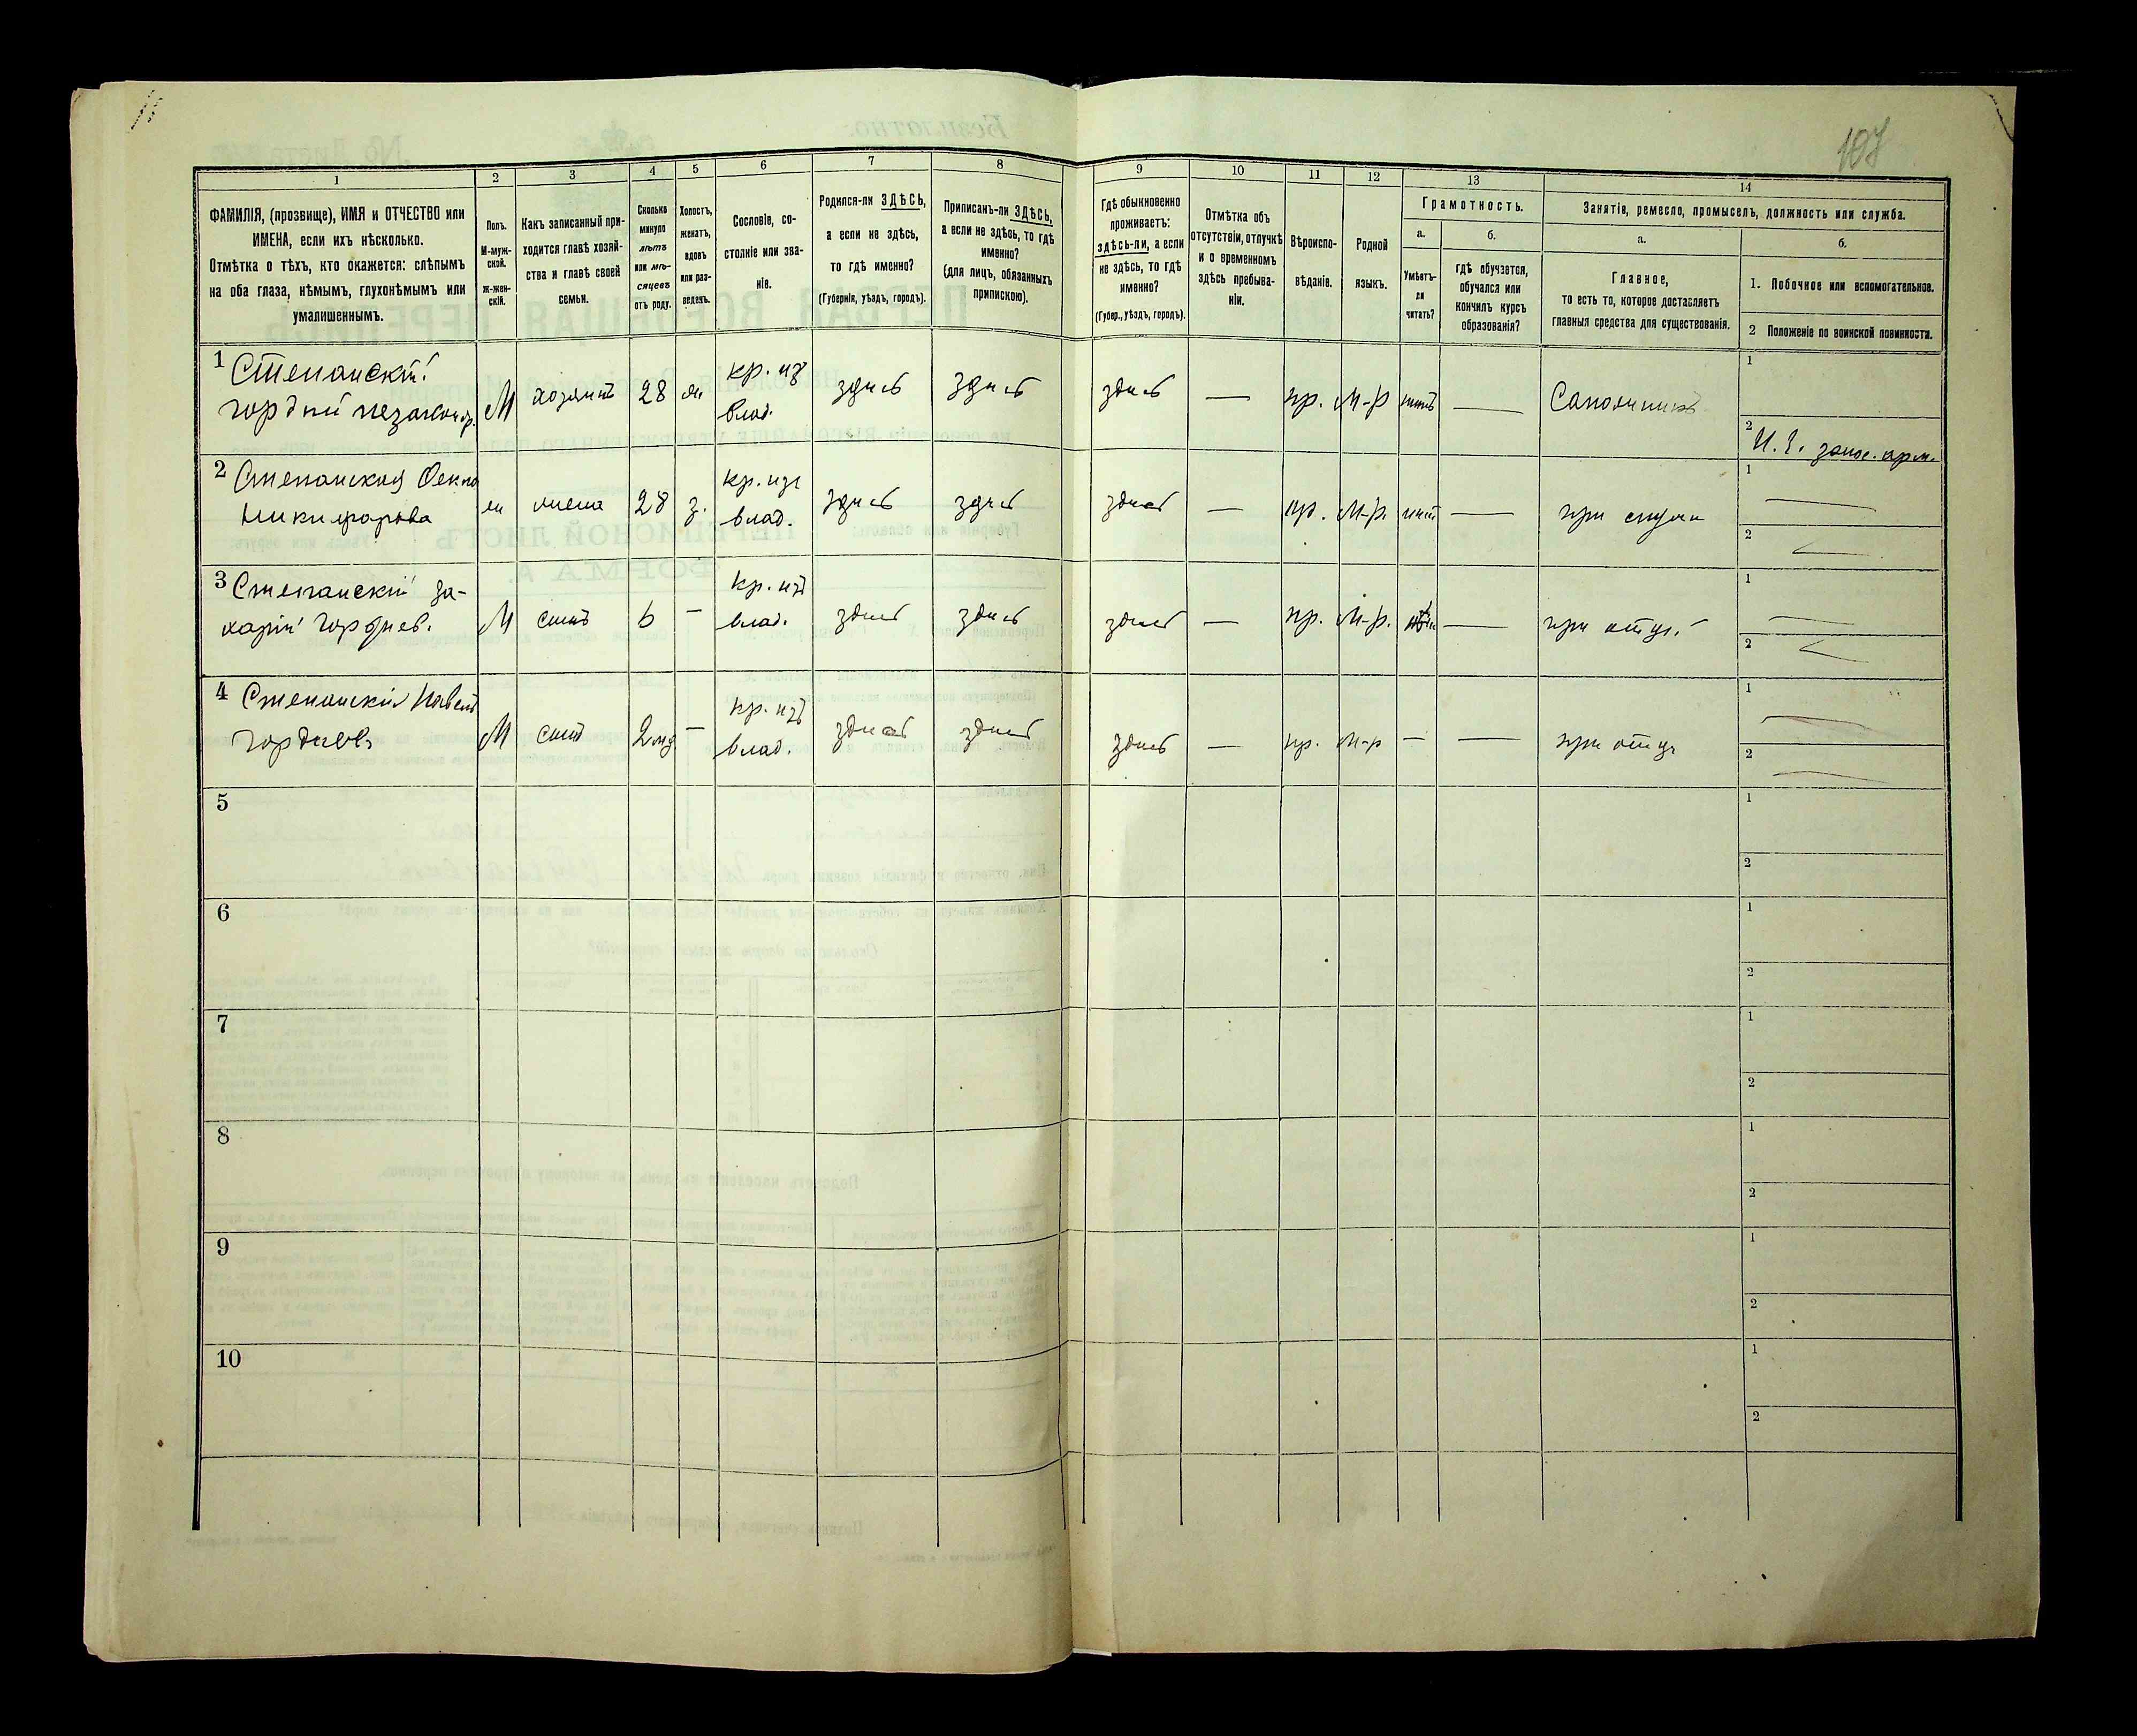 107
1
2
3
4
5
6
7
8
9
10
11
12
13
14
ФАМИЛІЯ, (прозвище), ИМЯ и ОТЧЕСТВО или
ИМЕНА, если ихъ нѣсколько.
Отмѣтка о тѣхъ, кто окажется: слѣпымъ
на оба глаза, нѣмымъ, глухонѣмымъ или
умалишеннымъ.
Полъ.
М-муж-
ской.
ж-жен-
скій.
Какъ записанный при-
ходится главѣ хозяй-
ства и главѣ своей
семьи.
Сколько
минуло
лѣтъ
или мѣ-
сяцевъ
отъ роду.
Холостъ,
женатъ,
вдовъ
или раз-
веденъ.
Сословіе, со-
стояніе или зва-
ніе.
Родился-ли ЗДѢСЬ,
а если не здѣсь,
то гдѣ именно?
(Губернія, уѣздъ, городъ).
Приписанъ-ли ЗДѢСЬ,
а если не здѣсь, то гдѣ
именно?
(для лицъ, обязанныхъ
припискою).
Гдѣ обыкновенно
проживаетъ:
здѣсь-ли, а если
не здѣсь, то гдѣ
именно?
(Губер., уѣздъ, городъ).
Отмѣтка объ
отсутствіи, отлучкѣ
и о временномъ
здѣсь пребыва-
ніи.
Вѣроиспо-
вѣданіе.
Родной
языкъ.
Грамотность.
а.
Умѣетъ-
ли
читать?
б.
гдѣ обучается,
обучался или
кончилъ курсъ
образованія?
Занятіе, ремесло, промыселъ, должность или служба.
а.
Главное,
то есть то, которое доставляетъ
главныя средства для существованія.
б.
1. Побочное или вспомогательное.
2 Положеніе по воинской повинности.
1 Степанскій
Гордій незаконнр. М хозяинъ 28 ж кр. изъ влад. здись здись здись — пр. М-р нитъ — Сапожникъ 1
2 запас. арм.
2 Степанская
Никифорова ж жена 28 з. кр. изъ влад. здись здись здись — пр. М-р. нитъ — при 1 —
2 —
3 Степанскій За-
харій Гордіев. М сынъ 6 — кр. изъ влад. здись здись здись — пр. М-р. — при отци 1 —
2 —
4 Степанскій Павелъ
Гордіевъ М сынъ 2 кр. изъ влад. здись здись здись — пр. М-р — — при отци 1 —
2 —
5 1
2
6 1
2
7 1
2
8 1
2
9 1
2
10 1
2